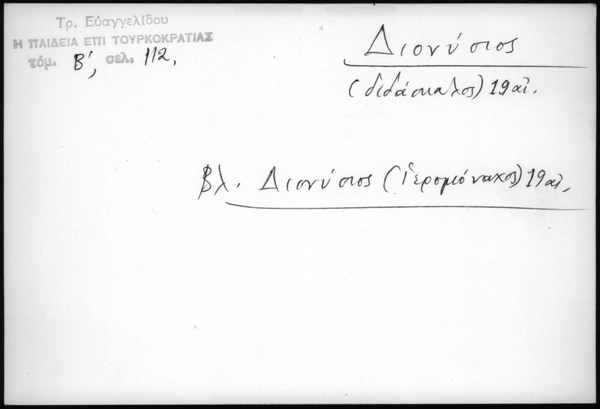 Τρ. Εὐαγγελίδου
Η ΠΑΙΔΕΙΑ ΕΠΙ ΤΟΥΡΚΟΚΡΑΤΙΑΣ
τόμ. Β', σελ. 112.
Διονύσιος
(διδάσκαλος) 19 αἰ.
βλ. Διονύσιος (ἱερομόναχος) 19 αἰ.